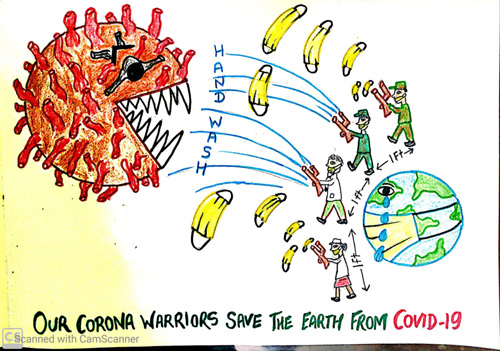 HAND
WASH
1 Ft
1 ft
1 Ft
OUR CORONA WARRIORS SAVE THE EARTH FROM COVID-19
CS Scanned with CamScanner